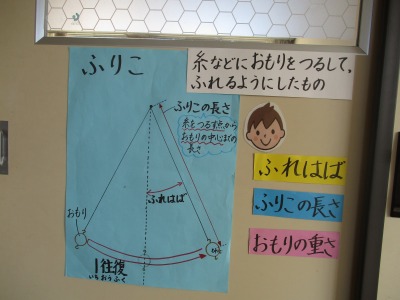 ふりこ
糸などにおもりをつるして,
ふれるようにしたもの
ふりこの長さ
糸をつるす点から
おもりの中心までの
長さ
ふれはば
おもり
1往復
いちおうふく
ふれはば
ふりこの長さ
おもりの重さ